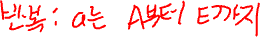 반복: a는 A부터 E까지